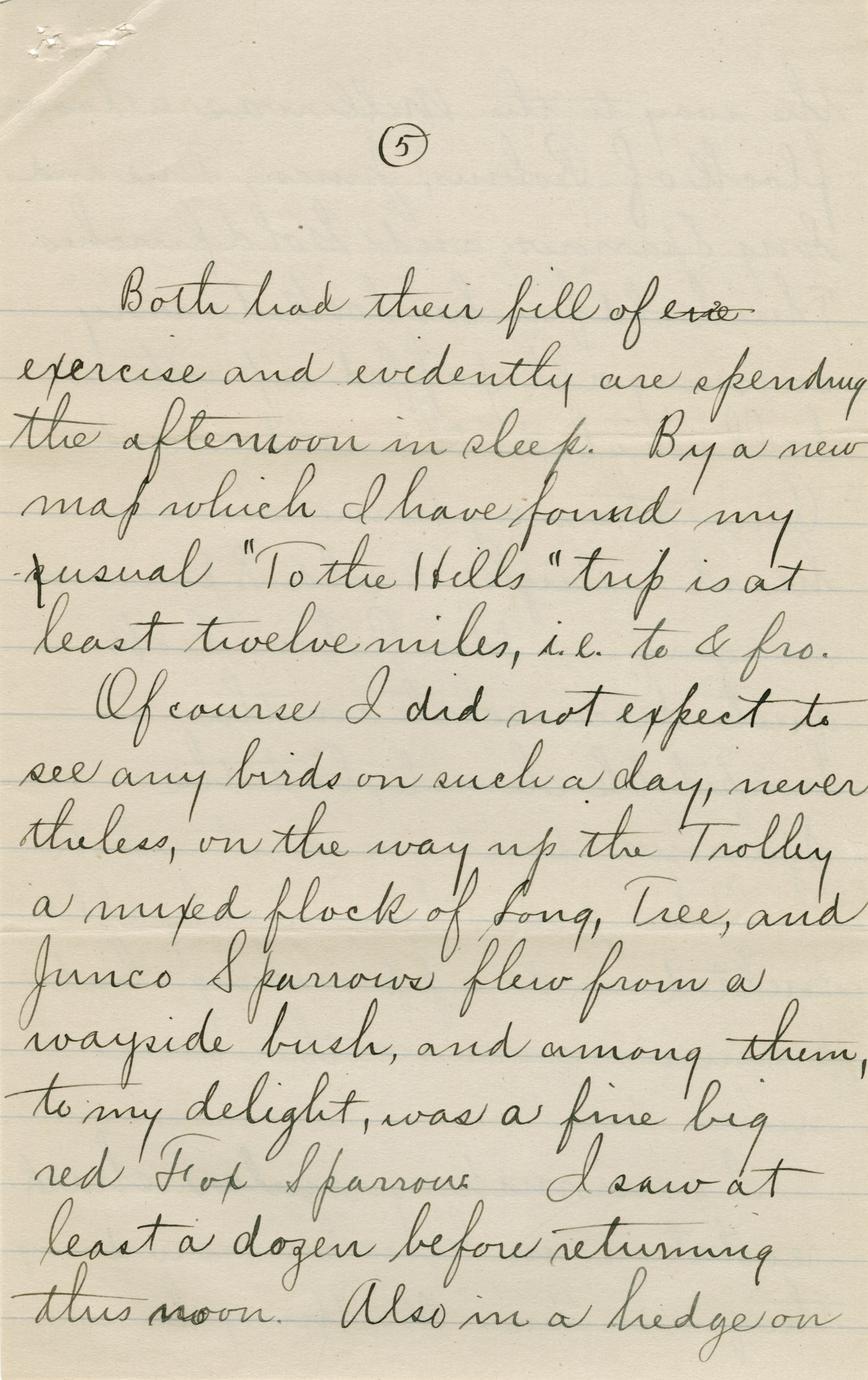 5
Both had their fill of exe
exercise and evidently are spending
the afternoon in sleep. By a new
map which I have found my
usual "To the Hills" trip is at
least twelve miles, i.e. to & fro.
Of course I did not expect to
see any birds on such a day, never
theless, on the way up the Trolley
a mixed flock of Song, Tree, and
Junco Sparrows flew from a
wayside bush, and among them,
to my delight, was a fine big
red Fox Sparrow. I saw at
least a dozen before returning
this noon. Also in a hedge on